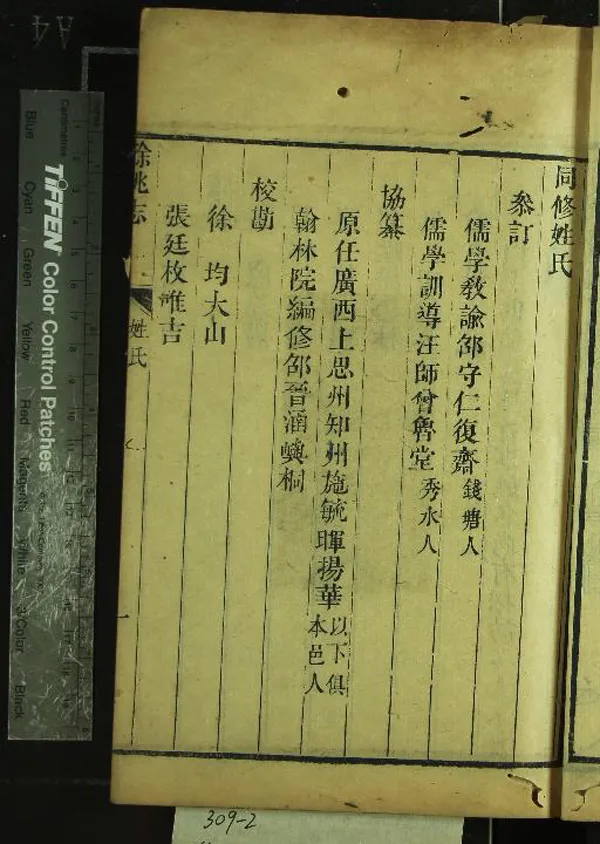 同修姓氏
叅訂
儒學敎諭邵守仁復齋錢塘人
儒學訓導汪師曾魯堂秀水人
協纂
原任廣西上思州知州施毓暉揚華以下俱本邑人
翰林院編修邵晉涵嶼桐
校勘
徐均大山
張廷枚惟吉
餘姚志
姓氏
一
A4
Centimetres
TIFFEN Color Control Patches
Blue
Cyan
Green
Yellow
Red
Magenta
White
3/Color
Black
309-2